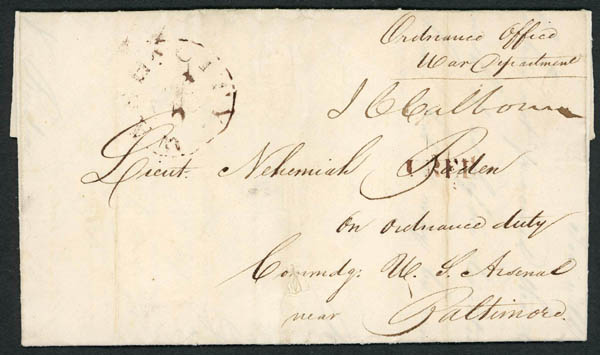 Ordnance Office
War Department
J C Calhoun
Lieut. Nehemiah Baden
FREE
on ordnance duty
Commdg: U. S. Arsenal
near Baltimore.